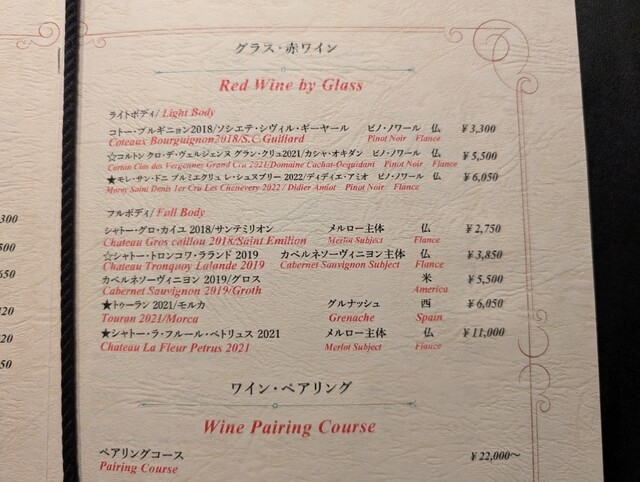 グラス・赤ワイン
Red Wine by Glass
ライトボディ/ Light Body
コトー・ブルギニョン2018/ソシエテ・シヴィル・ギーヤール ピノ・ノワール 仏 ¥3,300
Coteaux Bourguignon2018/S.C.Guillard Pinot Noir Flance
☆コルトン クロ・デ・ヴェルジェンヌ グラン・クリュ2021/カシャ・オキダン ピノ・ノワール 仏 ¥5,500
Corton Clos des Vergennes Grand Cru 2021/Domaine Cachat-Ocquidant Pinot Noir Flance
★モレ・サン・ドニ プルミエクリュ レ・シュヌブリー 2022/ディディエ・アミオ ピノ・ノワール 仏 ¥6,050
Morey Saint Denis 1er Cru Les Chenevery 2022 / Didier Amiot Pinot Noir Flance
フルボディ/ Full Body
シャトー・グロ・カイユ 2018/サンテミリオン メルロー主体 仏 ¥2,750
Chateau Gros caillou 2018/Saint Emilion Merlot Subject Flance
☆シャトー・トロンコワ・ラランド 2019 カベルネソーヴィニヨン主体 仏 ¥3,850
Chateau Tronquoy Lalande 2019 Cabernet Sauvignon Subject Flance
カベルネソーヴィニヨン 2019/グロス 米 ¥5,500
Cabernet Sauvignon 2019/Groth America
★トゥーラン 2021/モルカ グルナッシュ 西 ¥6,050
Touran 2021/Morca Grenache Spain
★シャトー・ラ・フルール・ペトリュス 2021 メルロー主体 仏 ¥11,000
Chateau La Fleur Petrus 2021 Merlot Subject Flance
ワイン・ペアリング
Wine Pairing Course
ペアリングコース ¥22,000～
Pairing Course